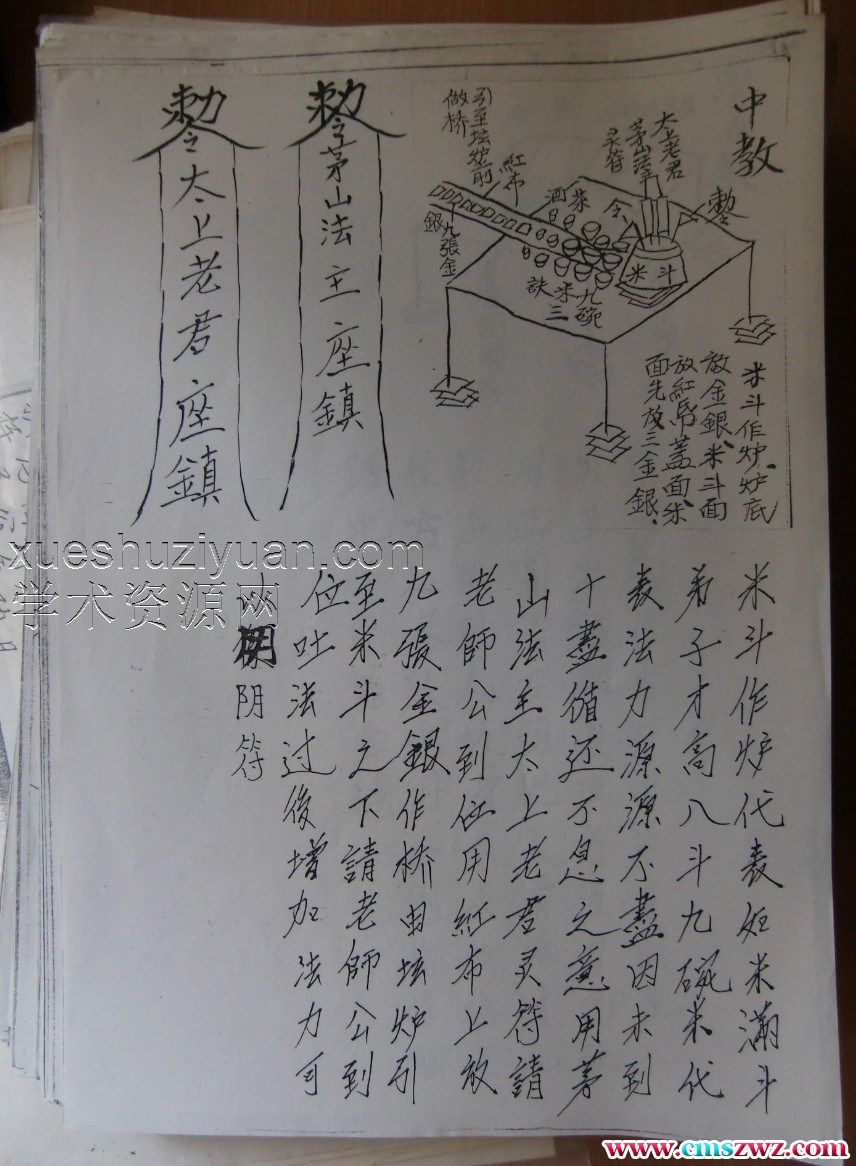 中教
太上老君
茅山法主
灵符
令
敕令
米斗
茶
酒
九碗
米三
訣
紅布
引至坛炉前
做桥
九張金
銀
米斗作炉、炉底
放金銀、米斗面
放紅帋蓋面、米
面先放三金銀、
敕令茅山法主座鎮
敕令太上老君座鎮
米斗作炉代表如米滿斗
弟子才高八斗九碗米代
表法力源源不盡因未到
十盡循还不息之意用茅
山法主太上老君灵符請
老師公到位用紅布上放
九張金銀作桥由坛炉引
至米斗之下請老師公到
位吐法过後增加法力可
阴符
xueshuziyuan.com
学术资源网
www.cmszwz.com